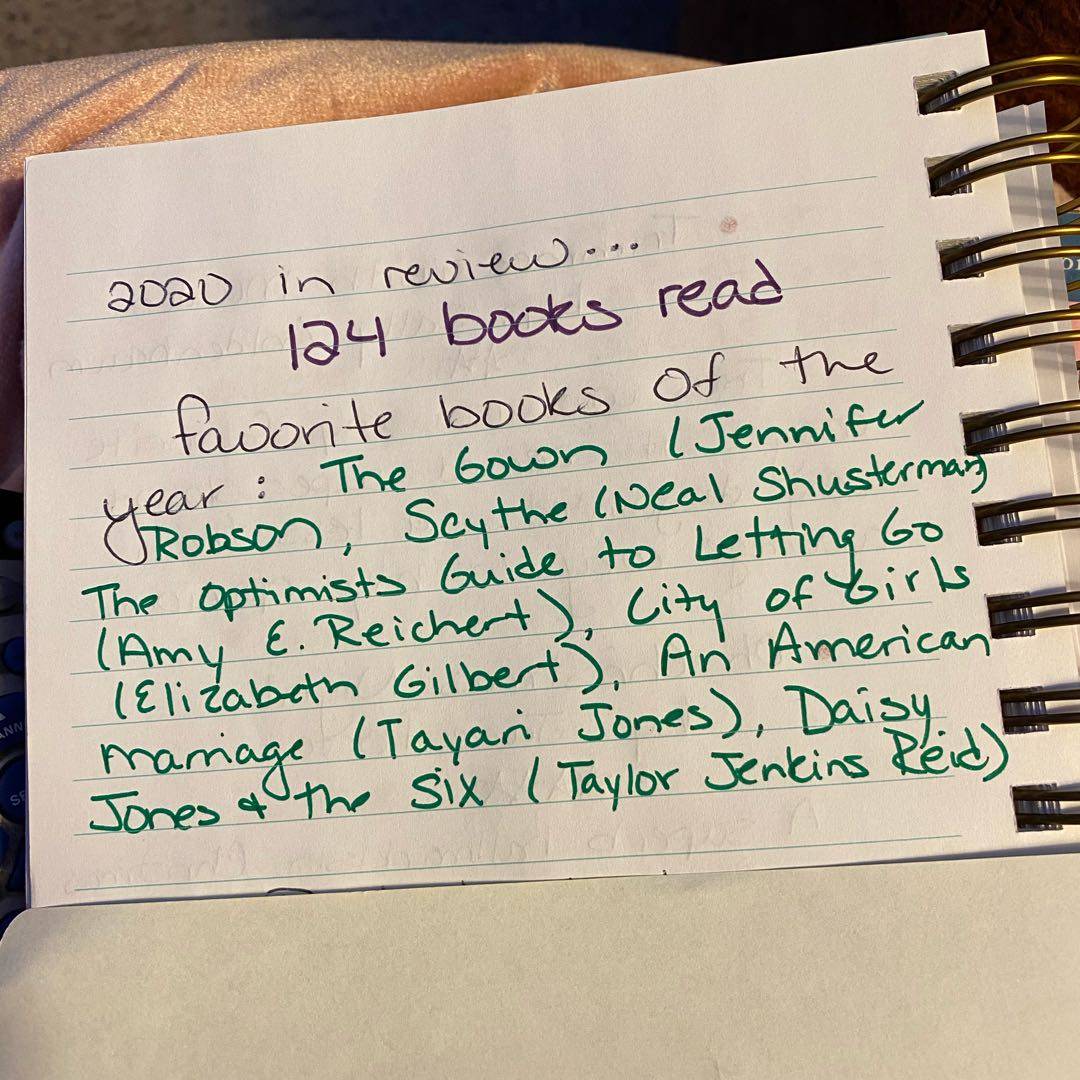 2020 in review....
124 books read
favorite books of the
year: The Gown (Jennifer
Robson, Scythe (Neal Shusterman)
The Optimists Guide to Letting Go
(Amy E. Reichert), City of Girls
(Elizabeth Gilbert), An American
marriage (Tayari Jones), Daisy
Jones & the Six (Taylor Jenkins Reid)